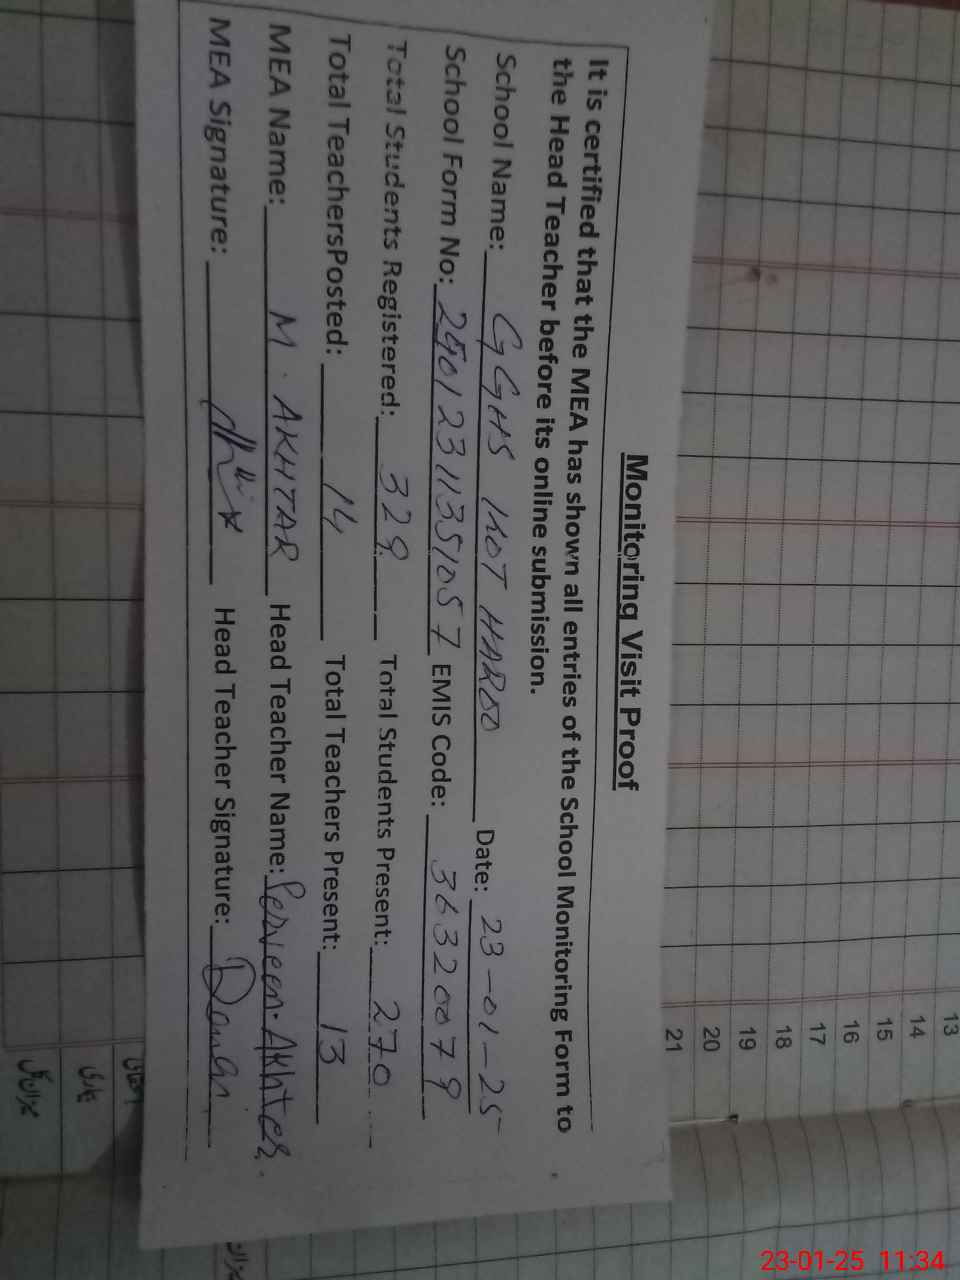 Monitoring Visit Proof
It is certified that the MEA has shown all entries of the School Monitoring Form to
the Head Teacher before its online submission.
School Name: GGHS KOT HAROO Date: 23-01-25
School Form No: 25012311351057 EMIS Code: 36320079
Total Students Registered: 329 Total Students Present: 270
Total TeachersPosted: 14 Total Teachers Present: 13
MEA Name: M. AKHTAR Head Teacher Name: Perveen Akhter.
MEA Signature: Head Teacher Signature:
13
14
15
16
17
18
19
20
21
23-01-25 11:34